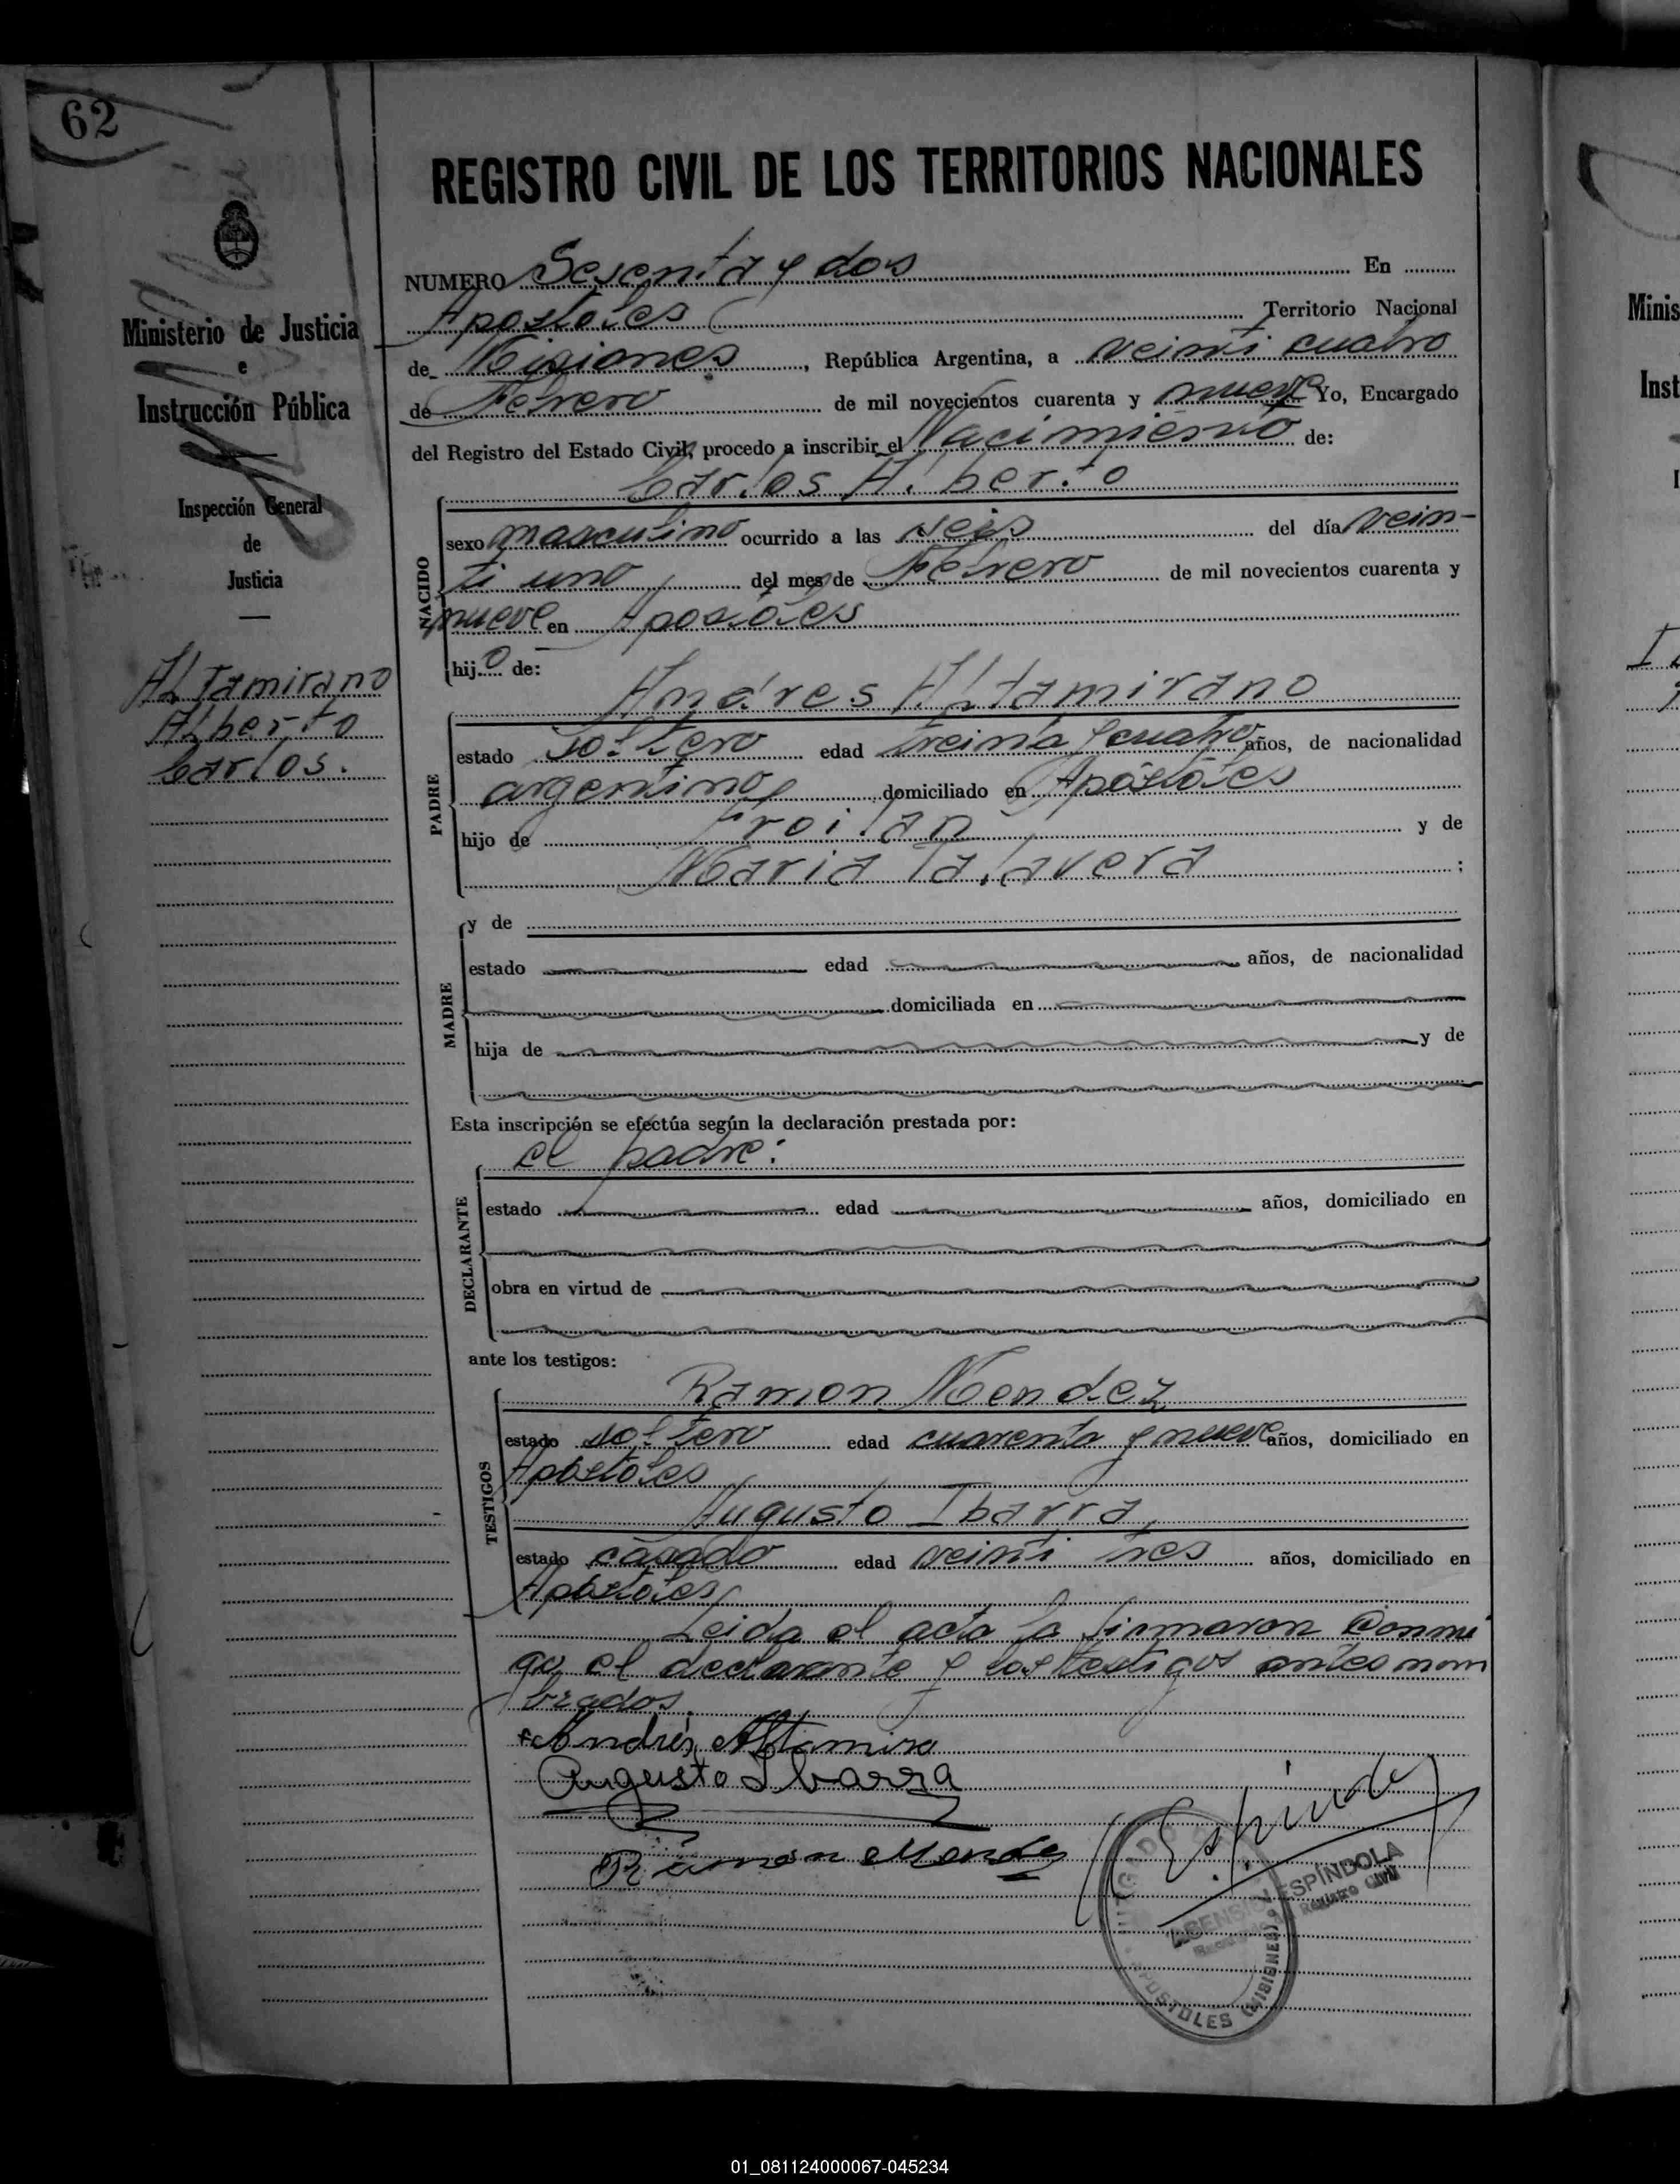 62
REGISTRO CIVIL DE LOS TERRITORIOS NACIONALES
NUMERO Sesenta y dos En
Apostoles Territorio Nacional
de Misiones, República Argentina, a veinti cuatro
de Febrero de mil novecientos cuarenta y nueve Yo, Encargado
del Registro del Estado Civil, procedo a inscribir el Nacimiento de:
Carlos Alberto
NACIDO
sexo masculino ocurrido a las seis del día vein-
ti uno del mes de Febrero de mil novecientos cuarenta y
nueve en Apostoles
hijo de:
Andres Altamirano
PADRE
estado soltero edad treinta y cuatro años, de nacionalidad
argentino domiciliado en Apostoles
hijo de Froilan y de
Maria Talavera ;
MADRE
y de
estado edad años, de nacionalidad
domiciliada en
hija de y de
Esta inscripción se efectúa según la declaración prestada por:
el padre:
DECLARANTE
estado edad años, domiciliado en
obra en virtud de
ante los testigos:
TESTIGOS
Ramon Mendez
estado soltero edad cuarenta y nueve años, domiciliado en
Apostoles
Augusto Ibarra
estado casado edad veinti tres años, domiciliado en
Apostoles
Leida el acta la firmaron Conmi
go el declarante y los testigos antes nom
brados.
Andrés Altamira
Augusto Ibarra
Ramon Mendez
Espindola
ASENSION ESPÍNDOLA
Registro Civil
APOSTOLES (MISIONES)
Ministerio de Justicia
e
Instrucción Pública
Inspección General
de
Justicia
Altamirano
Alberto
Carlos.
Minis
Inst
01_081124000067-045234